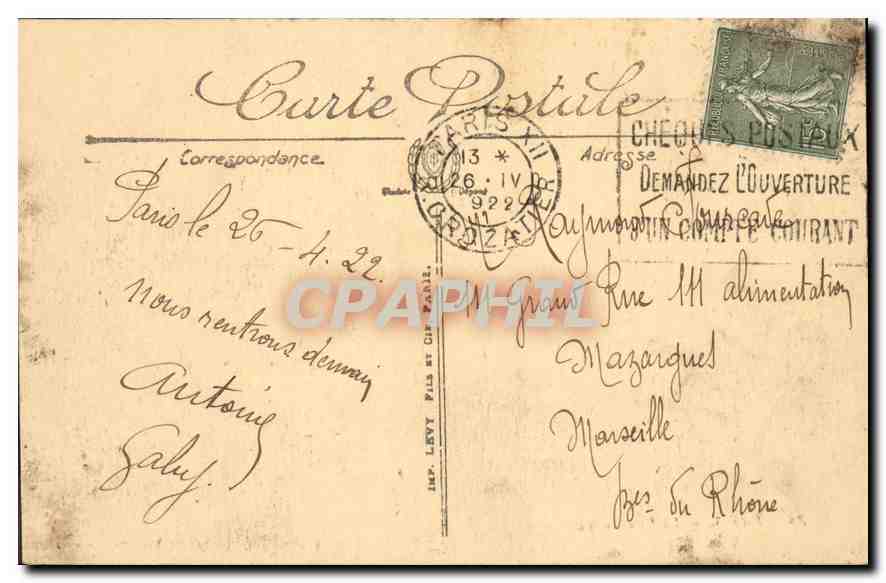 Carte Postale
RÉPUBLIQUE FRANÇAISE
15
PARIS XII
13 *
26 . IV
1922
R. CROZATIER
CHEQUES POSTAUX
DEMANDEZ L'OUVERTURE
D'UN COMPTE COURANT
Correspondance
Adresse
Paris le 26-4.22.
nous rentrons demain
Antoine
Gaby.
IMP. LEVY FILS ET CIE PARIS.
Raymond
111 Grand Rue 111 alimentation
Mazargues
Marseille
du Rhône
CPAPHIL